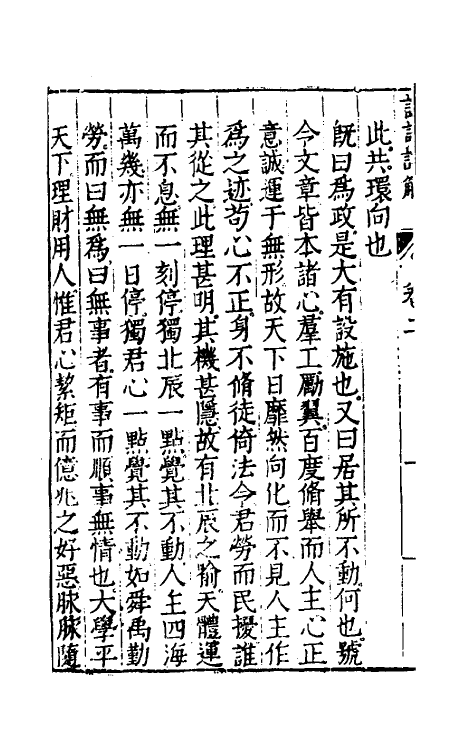 卷二
此共環向也
既曰爲政是大有設施也又曰居其所不動何也號
令文章皆本諸心羣工勵翼百度脩舉而人主心正
意誠運于無形故天下日靡然向化而不見人主作
爲之迹茍心不正身不脩徒倚法令君勞而民擾誰
其從之此理甚明其機甚隱故有北辰之喻天體運
而不息無一刻停獨北辰一點覺其不動人主四海
萬幾亦無一日停獨君心一點覺其不動如舜禹勤
勞而曰無爲曰無事者有事而順事無情也大學平
天下理財用人惟君心絜矩而億兆之好惡脉脉隨